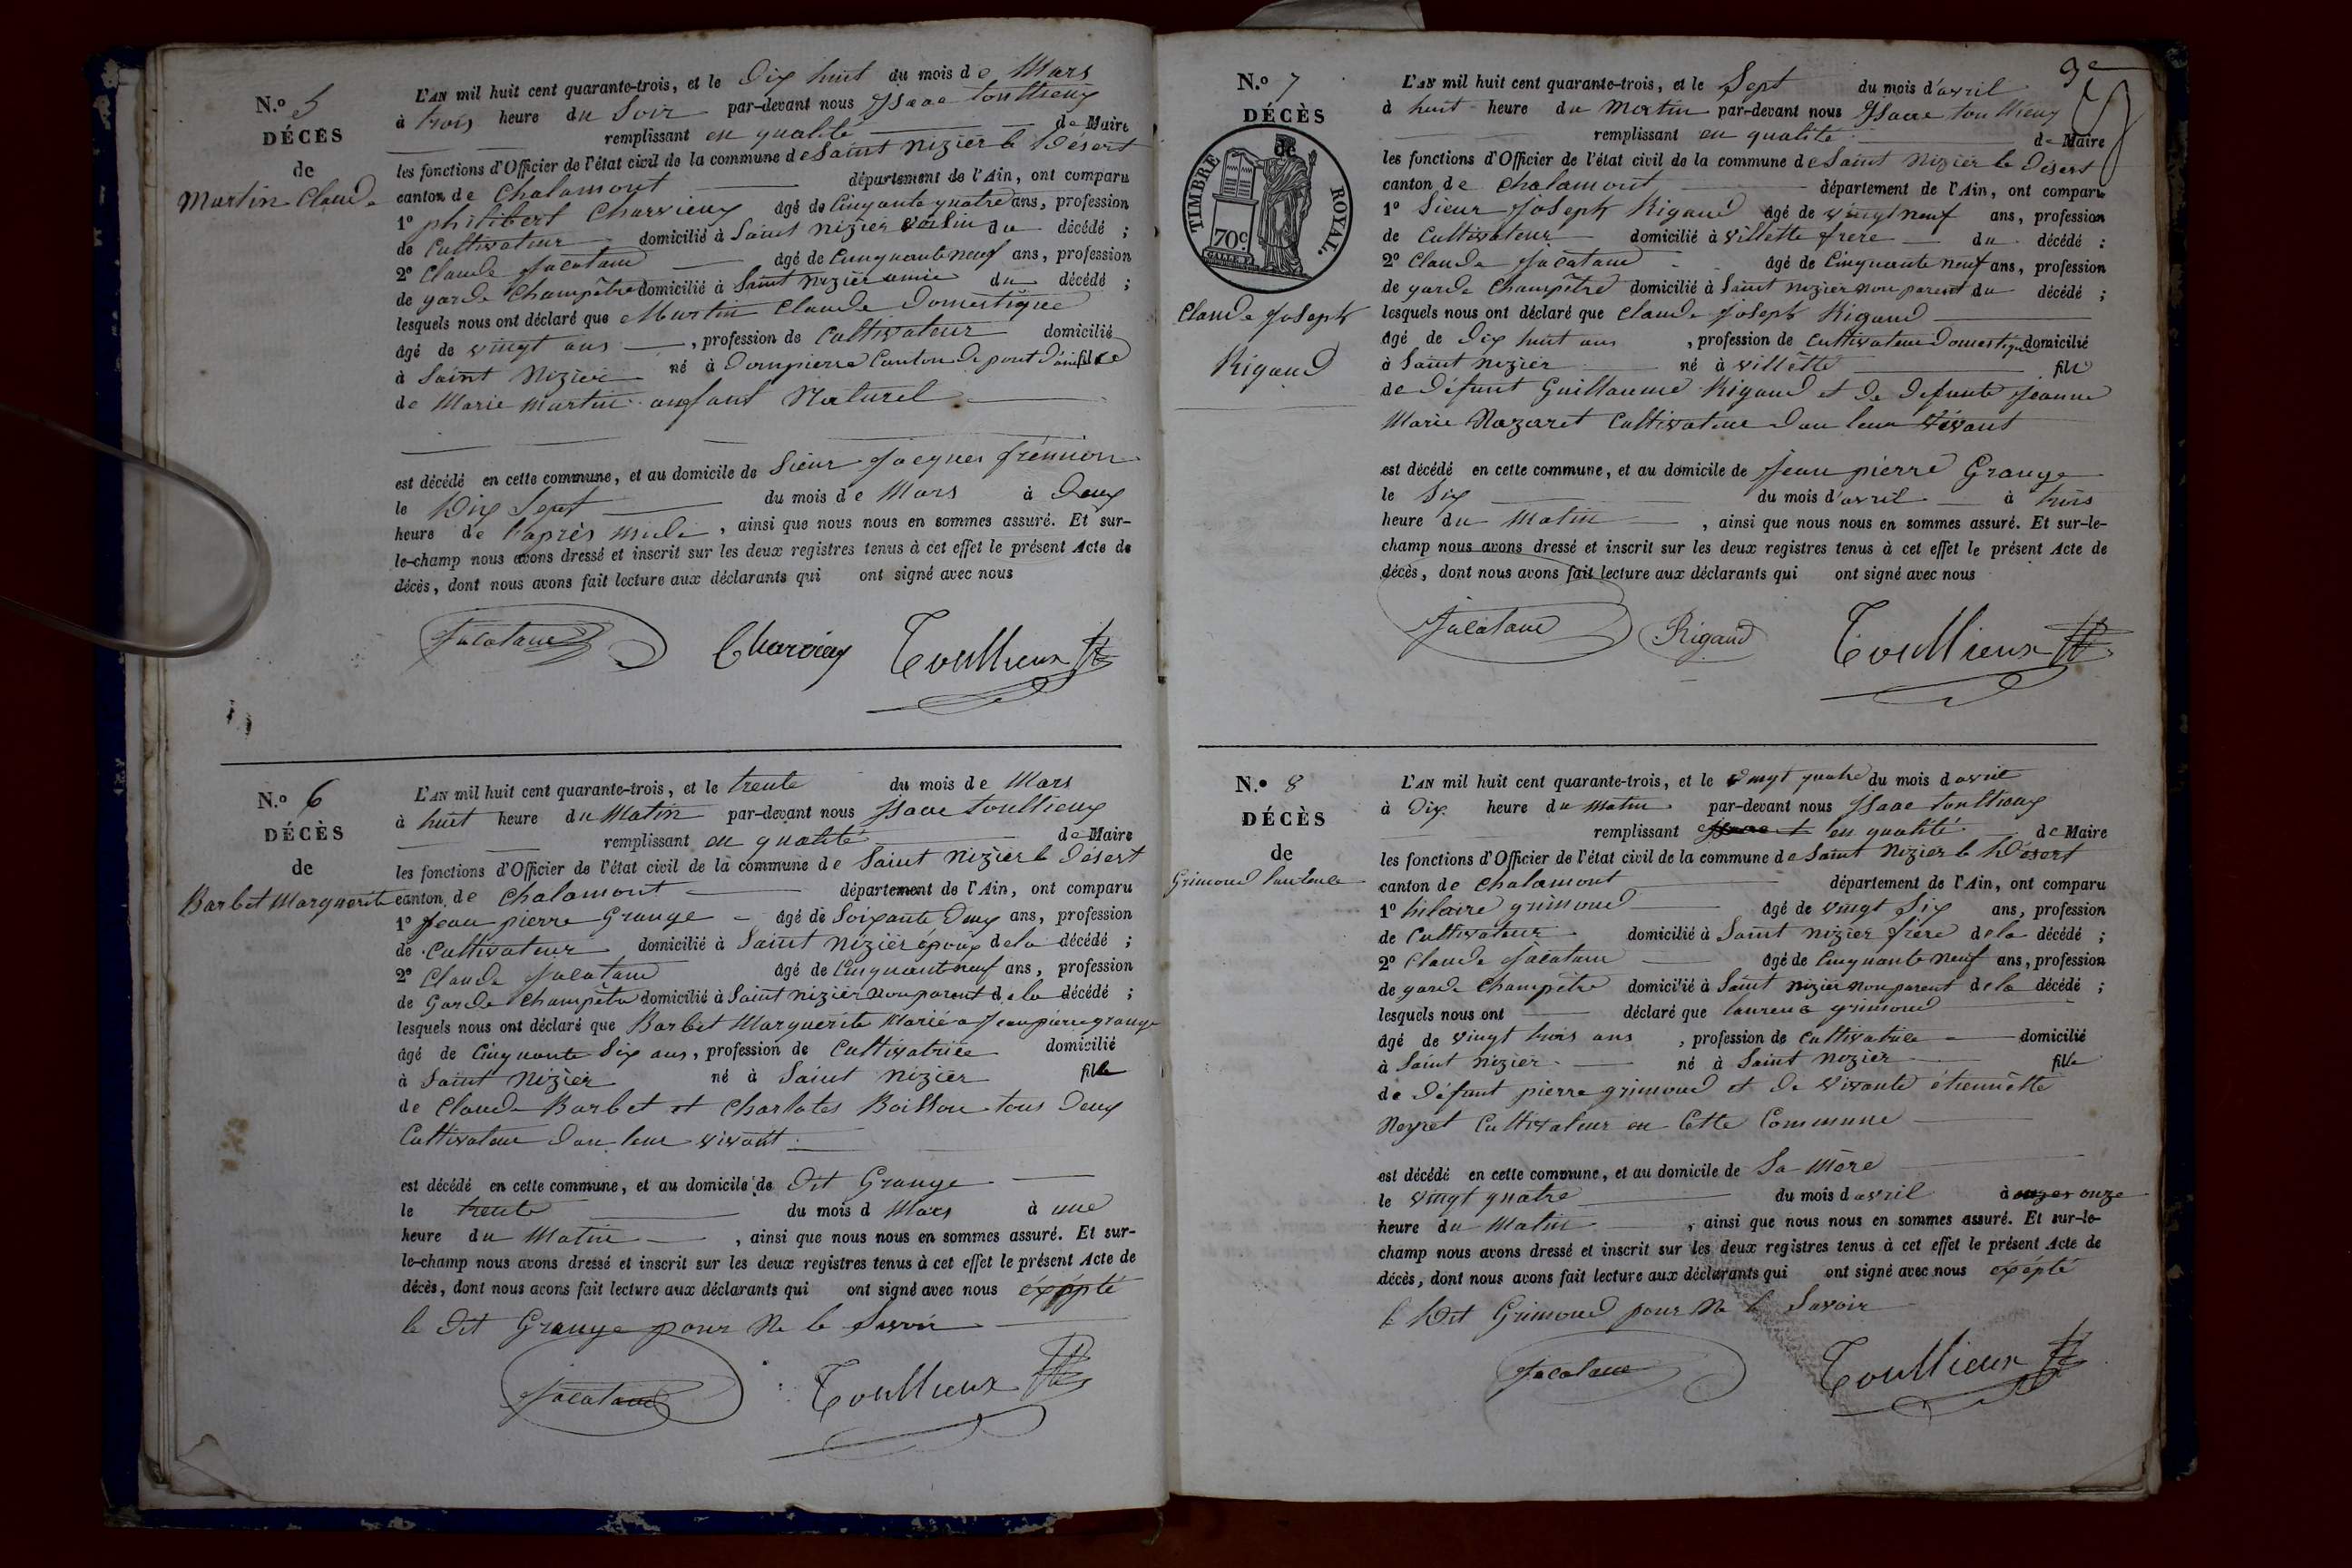 N.o 5
DÉCÈS
de
Martin Claude
L'AN mil huit cent quarante-trois, et le Dix huit du mois de Mars
à trois heure du Soir par-devant nous Isaac toullieux
remplissant en qualité de Maire
les fonctions d'Officier de l'état civil de la commune de Saint Nizier le Désert
canton de Chalamont département de l'Ain, ont comparu
1o philibert Charvieux âgé de Cinquante quatre ans, profession
de Cultivateur domicilié à Saint Nizier voisin du décédé ;
2o Claude Jacatane âgé de Cinquante neuf ans, profession
de garde Champêtre domicilié à Saint Nizier amie du décédé ;
lesquels nous ont déclaré que Martin Claude Domestique
âgé de vingt ans , profession de Cultivateur domicilié
à Saint Nizier né à Dompierre Canton de pont d'ain fils
de Marie Martin enfant Naturel
est décédé en cette commune, et au domicile de Sieur Jacques
le Dix Sept du mois de Mars à Deux
heure de l'après midi , ainsi que nous nous en sommes assuré. Et sur-
le-champ nous avons dressé et inscrit sur les deux registres tenus à cet effet le présent Acte de
décès, dont nous avons fait lecture aux déclarants qui ont signé avec nous
Jacatane Charvieux Toullieux
N.o 6
DÉCÈS
de
Barbet Marguerite
L'AN mil huit cent quarante-trois, et le trente du mois de Mars
à huit heure du Matin par-devant nous Isaac toullieux
remplissant en qualité de Maire
les fonctions d'Officier de l'état civil de la commune de Saint Nizier le Désert
canton de Chalamont département de l'Ain, ont comparu
1o Jean pierre Grange âgé de Soixante Deux ans, profession
de Cultivateur domicilié à Saint Nizier époux de la décédé ;
2o Claude Jacatane âgé de Cinquante neuf ans, profession
de Garde Champêtre domicilié à Saint Nizier non parent de la décédé ;
lesquels nous ont déclaré que Barbet Marguerite Marié a Jean pierre grange
âgé de Cinquante Six ans, profession de Cultivatrice domicilié
à Saint Nizier né à Saint Nizier fille
de Claude Barbet et Charlotes Boisson tous Deux
Cultivateur dan leur vivant
est décédé en cette commune, et au domicile de Dit Grange
le trente du mois d Mars à une
heure du Matin , ainsi que nous nous en sommes assuré. Et sur-
le-champ nous avons dressé et inscrit sur les deux registres tenus à cet effet le présent Acte de
décès, dont nous avons fait lecture aux déclarants qui ont signé avec nous éxépté
le Dit Grange pour Ne le Savoir
Jacatane Toullieux
9e
N.o 7
DÉCÈS
de
TIMBRE ROYAL.
70c.
Claude Joseph
Rigaud
L'AN mil huit cent quarante-trois, et le Sept du mois d'avril
à huit heure du Martin par-devant nous Isaac toullieux
remplissant en qualité de Maire
les fonctions d'Officier de l'état civil de la commune de Saint Nizier le Désert
canton de Chalamont département de l'Ain, ont comparu
1o Sieur Joseph Rigaud âgé de vingt neuf ans, profession
de Cultivateur domicilié à villette frere du décédé :
2o Claude Jacatane âgé de Cinquante neuf ans, profession
de garde Champêtre domicilié à Saint Nizier non parent du décédé ;
lesquels nous ont déclaré que Claude Joseph Rigaud
âgé de Dix huit ans , profession de Cultivateur Domestique domicilié
à Saint Nizier né à villette fils
de Défunt Guillaume Rigaud et de Defunte Jeanne
Marie Nazaret Cultivateur dan leur Vivant
est décédé en cette commune, et au domicile de Jean pierre Grange
le Six du mois d'avril à trois
heure du Matin , ainsi que nous nous en sommes assuré. Et sur-le-
champ nous avons dressé et inscrit sur les deux registres tenus à cet effet le présent Acte de
décès, dont nous avons fait lecture aux déclarants qui ont signé avec nous
Jacatane Rigaud Toullieux
N.o 8
DÉCÈS
de
Grimoud
L'AN mil huit cent quarante-trois, et le vingt quatre du mois d avril
à Dix heure du Matin par-devant nous Isaac toullieux
remplissant en qualité de Maire
les fonctions d'Officier de l'état civil de la commune de Saint Nizier le Désert
canton de Chalamont département de l'Ain, ont comparu
1o hilaire grimoud âgé de vingt Six ans, profession
de Cultivateur domicilié à Saint Nizier frére de la décédé ;
2o Claude Jacatane âgé de Cinquante neuf ans, profession
de garde Champêtre domicilié à Saint Nizier non parent de la décédé ;
lesquels nous ont déclaré que grimoud
âgé de vingt trois ans , profession de Cultivatrice domicilié
à Saint Nizier né à Saint Nizier fille
de Défunt pierre grimoud et de Vivante étiennette
Neyret Cultivateur en Cette Commune
est décédé en cette commune, et au domicile de Sa Mère
le vingt quatre du mois d avril à onze
heure du Matin , ainsi que nous nous en sommes assuré. Et sur-le-
champ nous avons dressé et inscrit sur les deux registres tenus à cet effet le présent Acte de
décès, dont nous avons fait lecture aux déclarants qui ont signé avec nous éxépté
le Dit Grimoud pour Ne le Savoir
Jacatane Toullieux